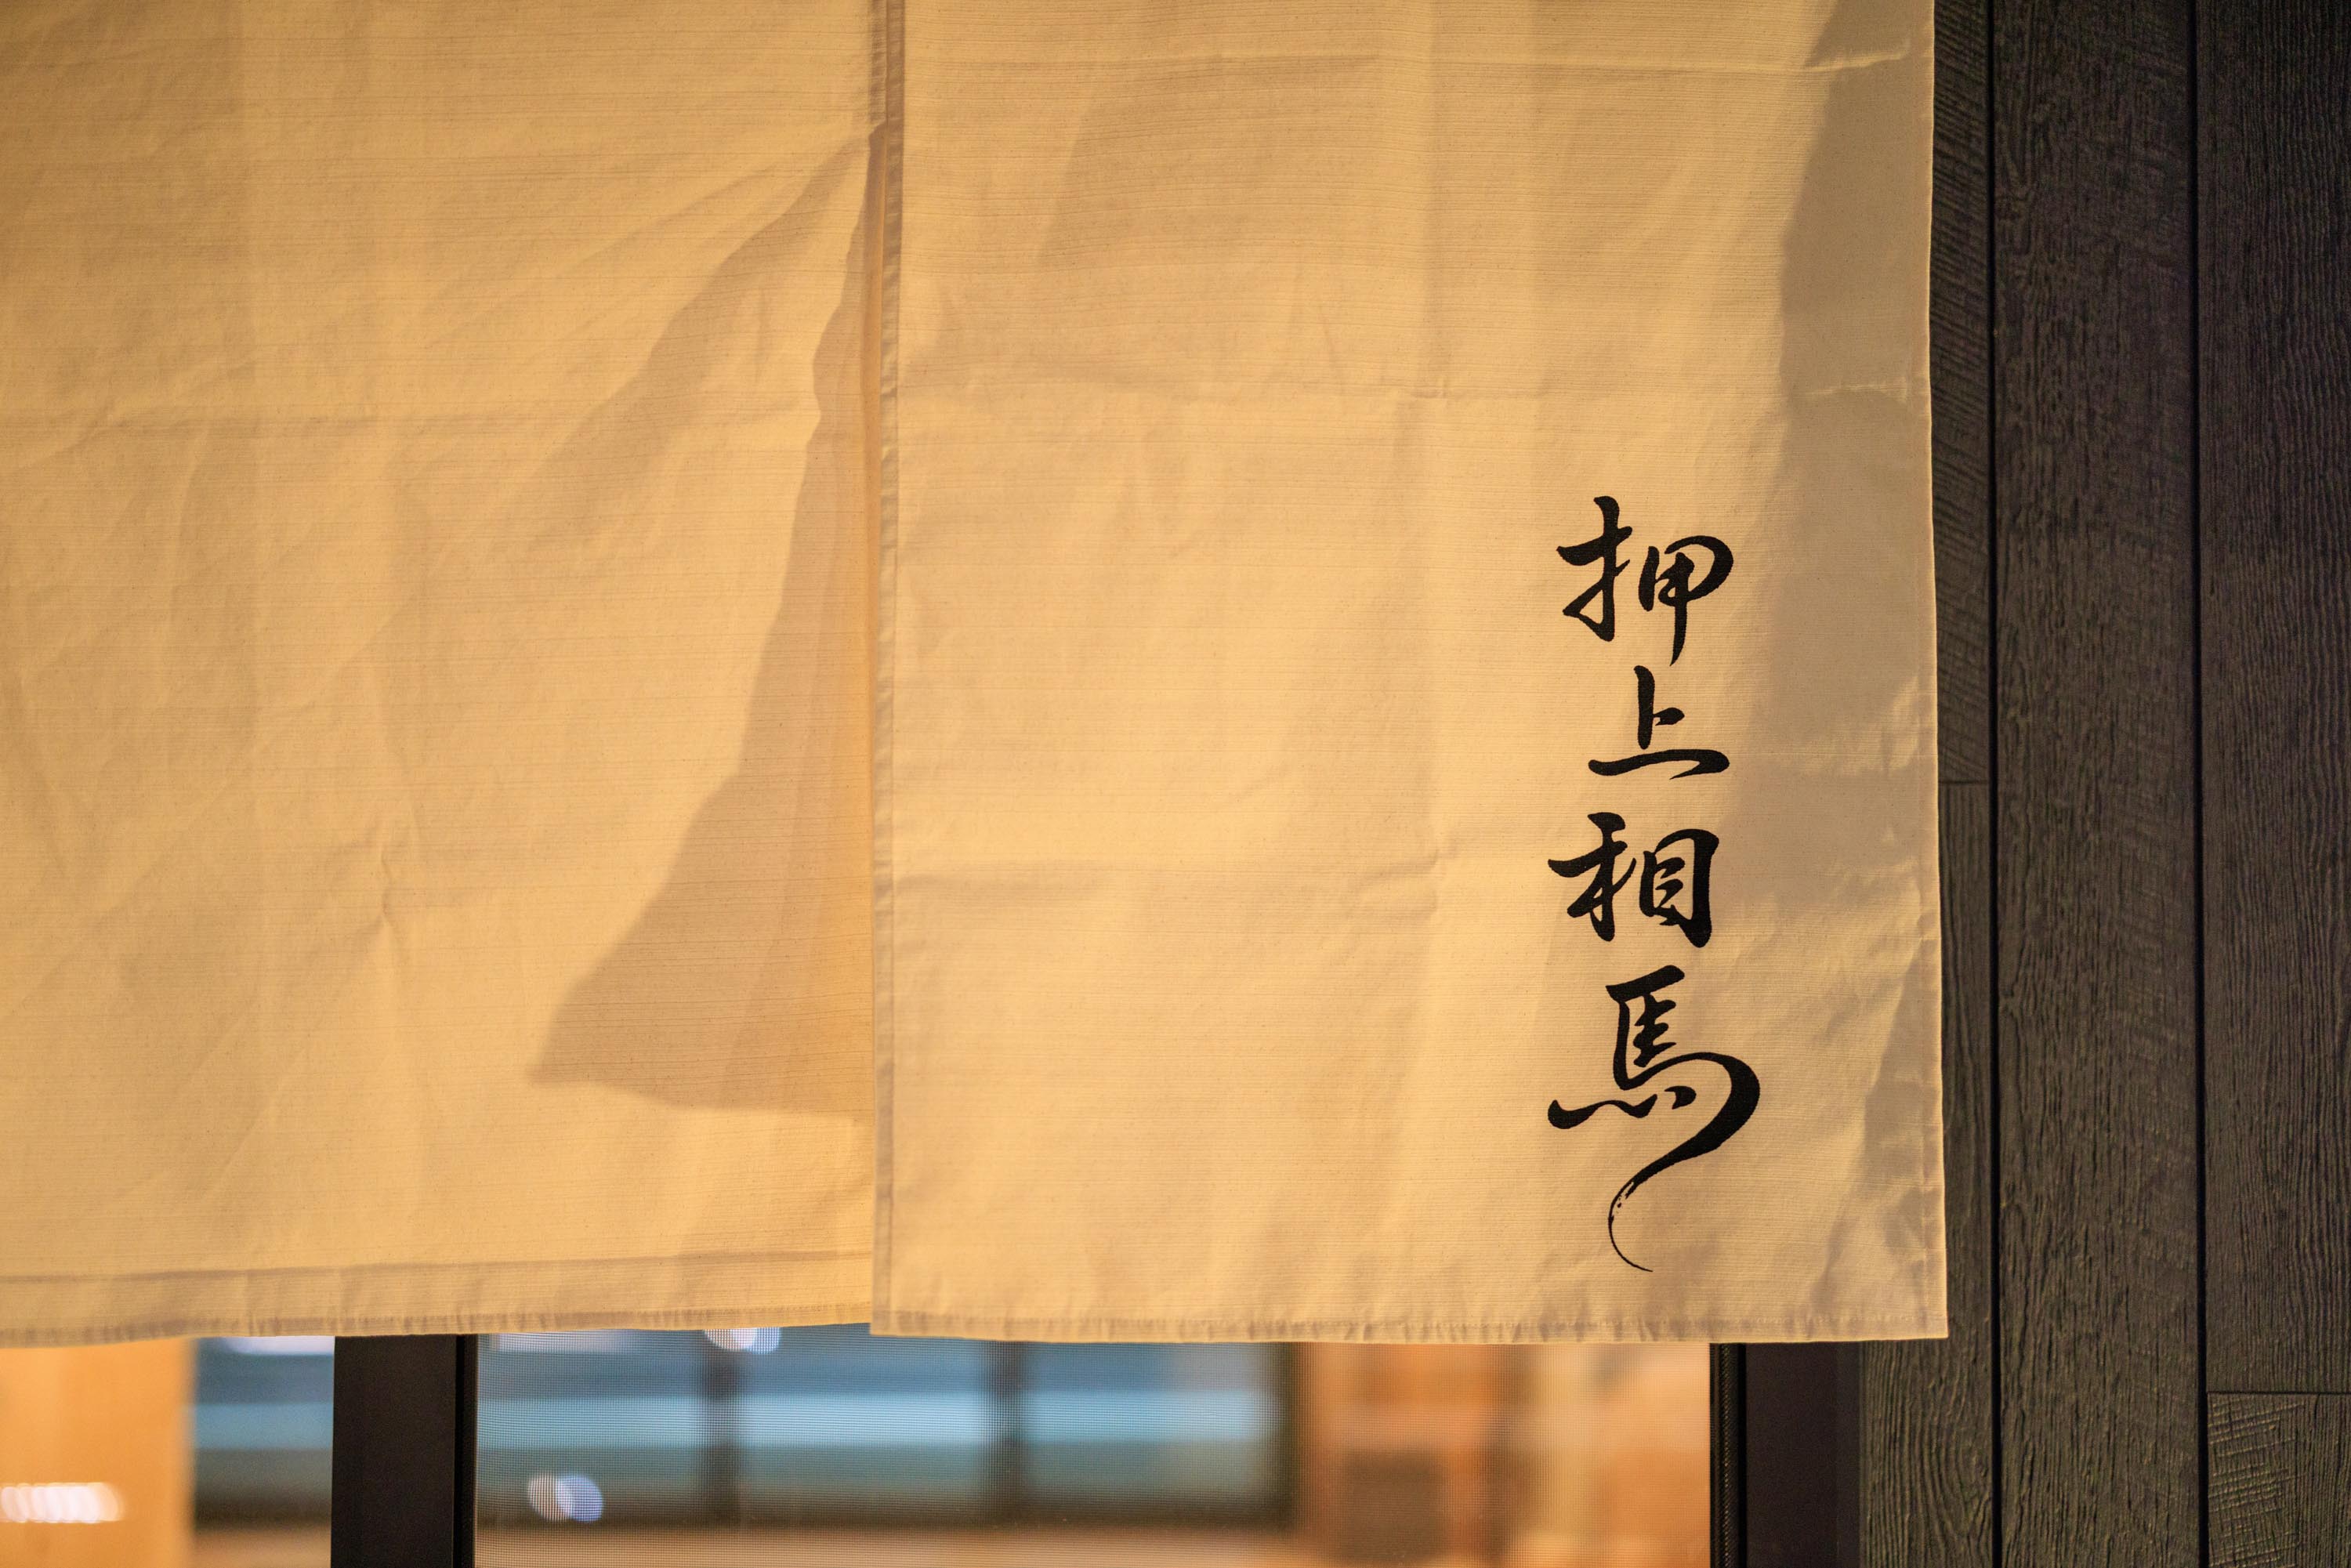 押上相馬